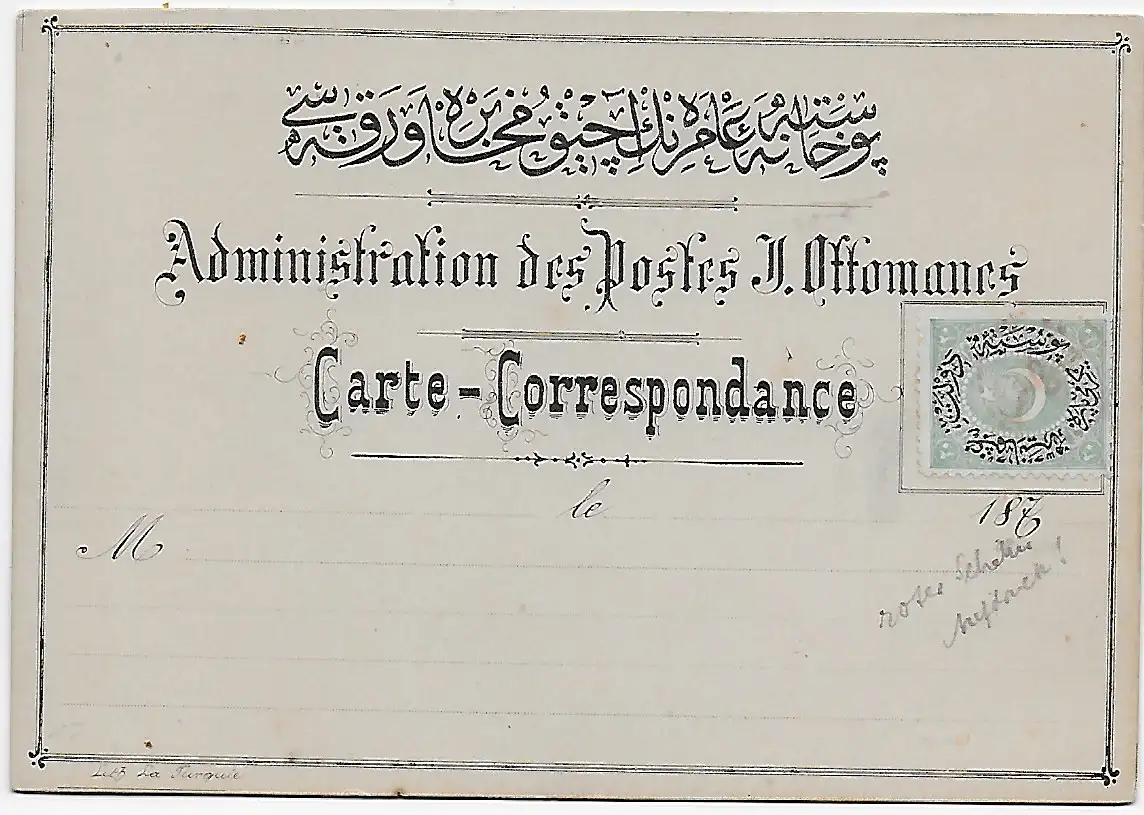 پوستەخانۀ عامرەنڭ آچیق مخابرە ورقەسی
Administration des Postes I. Ottomanes
Carte-Correspondance
le 187
M
roter Aufdruck!
Lith La Turquie